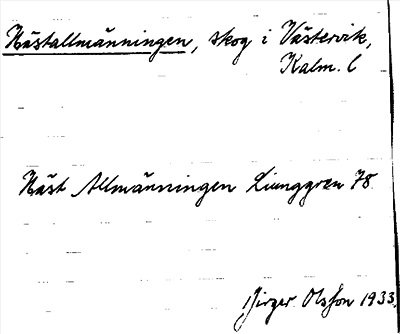 Hästallmänningen, skog i Västervik,
Kalm. l
Häst Allmänningen Ljunggren 78
Birger Olsson 1933.